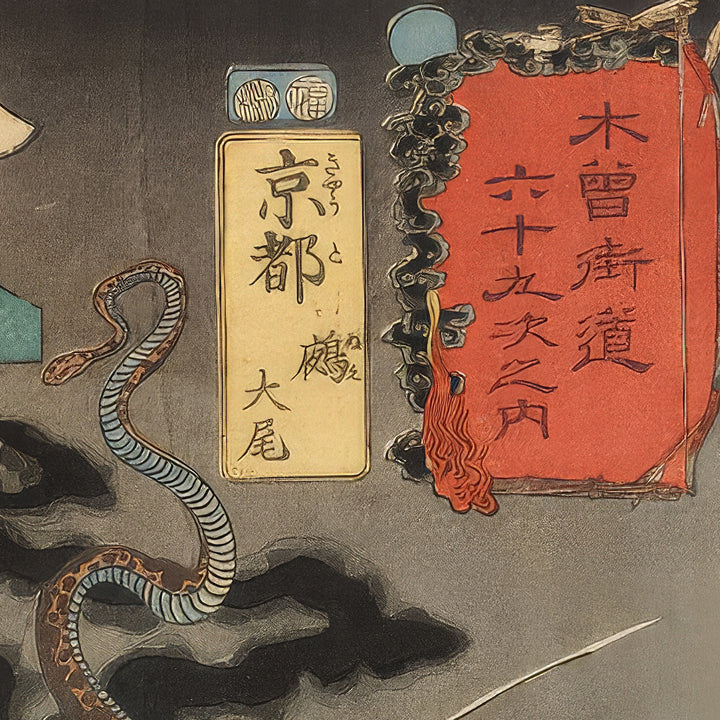 木曽街道
六十九次之内
京都
きやうと
鵺
ぬえ
大尾
福